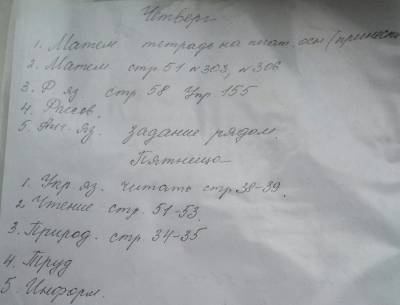 Четверг
1. Матем. тетрадь на печат. осн (принести
2. Матем. стр. 51 №303, №306
3. Р яз стр. 58 Упр. 155
4. Рисов.
5. Анг. яз. задание рядом.
Пятница
1. Укр яз. читать стр. 38-39.
2 Чтение стр. 51-53.
3. Природ. стр. 34-35
4. Труд
5. Информ.